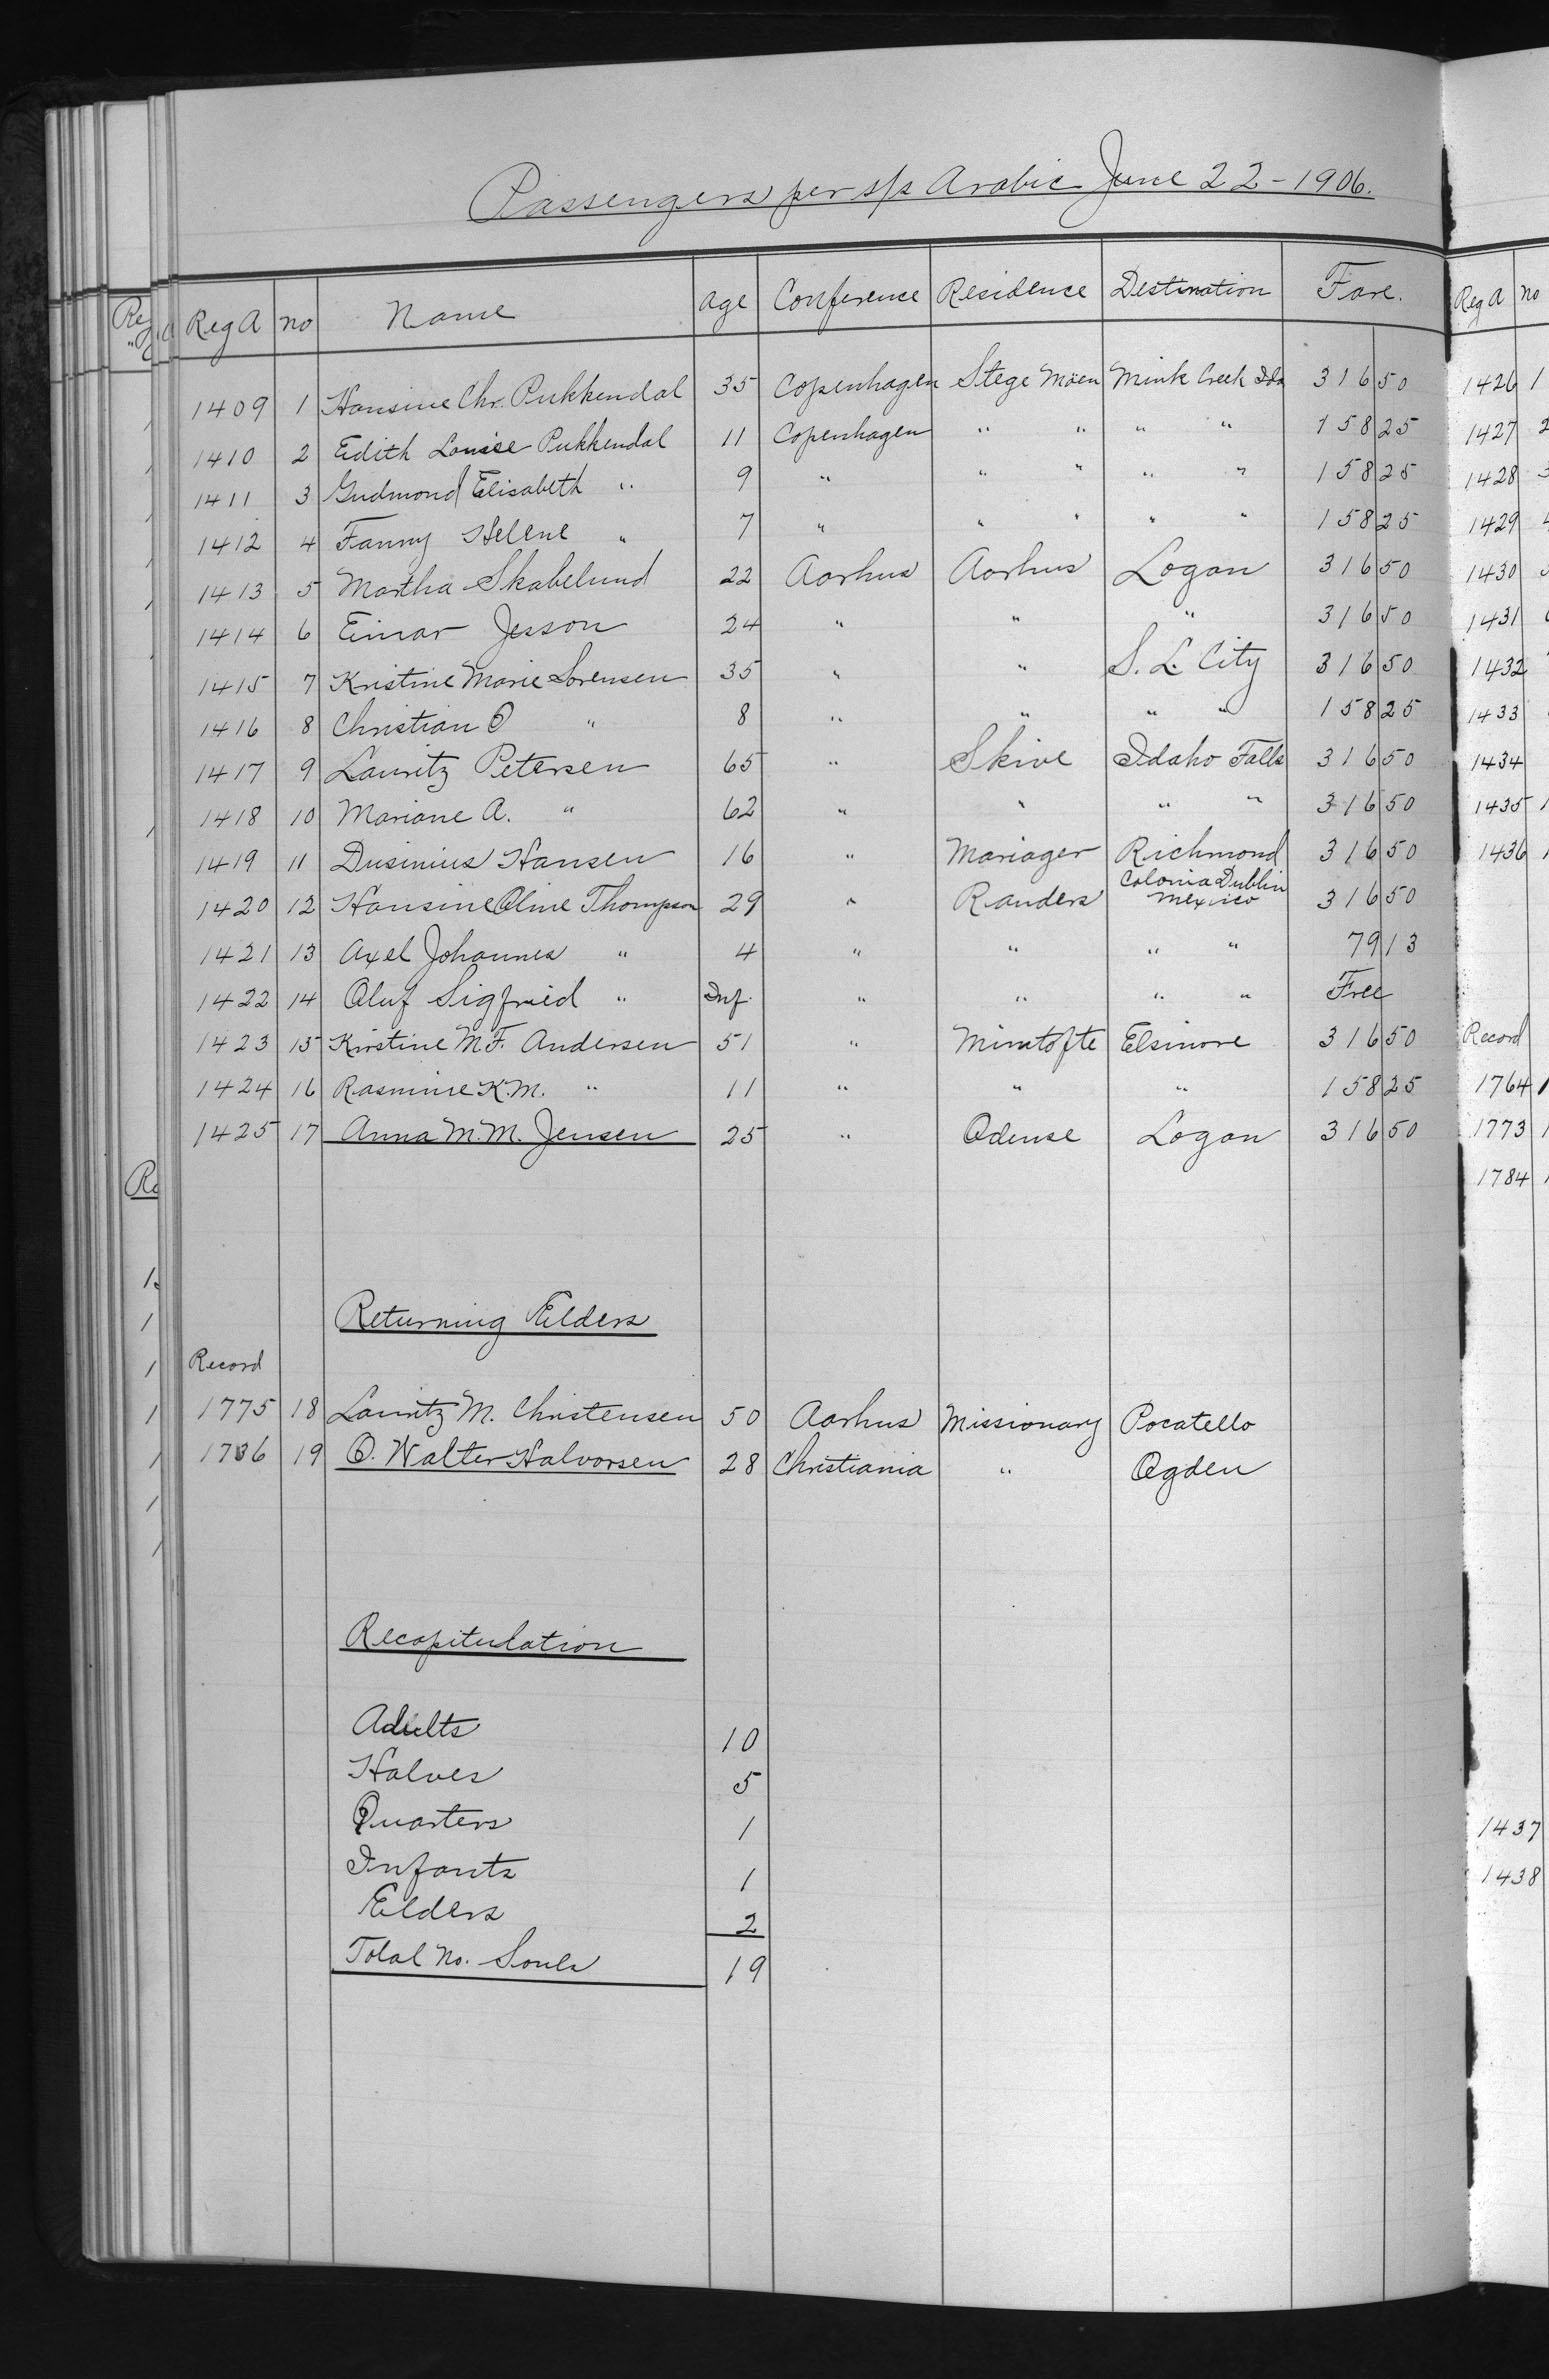 Passengers per s/s Arabic June 22 - 1906.
Reg A no Name Age Conference Residence Destination Fare.
1409 1 Hansine Chr. Pukkendal 35 Copenhagen Stege Möen Mink Creek Ida 316 50
1410 2 Edith Louise Pukkendal 11 Copenhagen " " " " 158 25
1411 3 Gudmond Elisabeth " 9 " " " " " 158 25
1412 4 Fanny Helene " 7 " " " " " 158 25
1413 5 Martha Skabelund 22 Aarhus Aarhus Logan 316 50
1414 6 Einar Jesson 24 " " " 316 50
1415 7 Kristine Marie Sorensen 35 " " S. L. City 316 50
1416 8 Christian O " 8 " " " " 158 25
1417 9 Lauritz Petersen 65 " Skive Idaho Falls 316 50
1418 10 Mariane A. " 62 " " " " 316 50
1419 11 Dusinius Hansen 16 " Mariager Richmond 316 50
1420 12 Hansine Oline Thompson 29 " Randers Colonia Dublin Mexico 316 50
1421 13 Axel Johannes " 4 " " " " 79 13
1422 14 Oluf Sigfried " Inf. " " " " Free
1423 15 Kirstine M.F. Andersen 51 " Mirntofte Elsinore 316 50
1424 16 Rasmine K.M. " 11 " " " 158 25
1425 17 Anna M.M. Jensen 25 " Odense Logan 316 50
Returning Elders
Record
1775 18 Lauritz M. Christensen 50 Aarhus Missionary Pocatello
19 O. Walter Halvorsen 28 Christiania " Ogden
Recapitulation
Adults 10
Halves 5
Quarters 1
Infants 1
Elders 2
Total No. Souls 19
Reg A no
1426 1
1427 2
1428
1429
1430
1431
1432
1433
1434
1435
1436
Record
1764
1773
1784
1437
1438